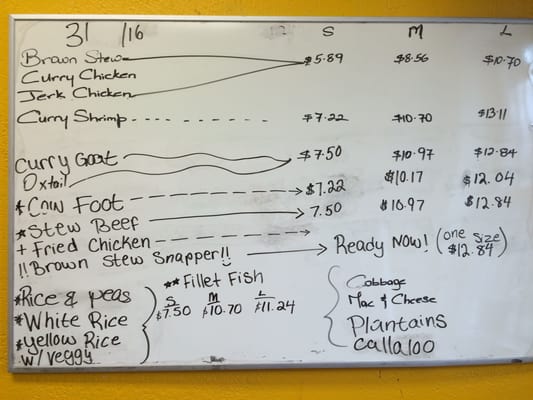 31 /16 S M L
Brown Stew $5.89 $8.56 $10.70
Curry Chicken
Jerk Chicken
Curry Shrimp - - - - - - - $7.22 $10.70 $13.11
Curry Goat $7.50 $10.97 $12.84
Oxtail $10.17 $12.04
* Cow Foot $7.22
* Stew Beef 7.50 $10.97 $12.84
+ Fried Chicken
!! Brown Stew Snapper!! Ready Now! (one size $12.84)
** Fillet Fish
S M L
$7.50 $10.70 $11.24
*Rice & peas
*White Rice
*Yellow Rice
w/veggy
Cabbage
Mac & Cheese
Plantains
Callaloo